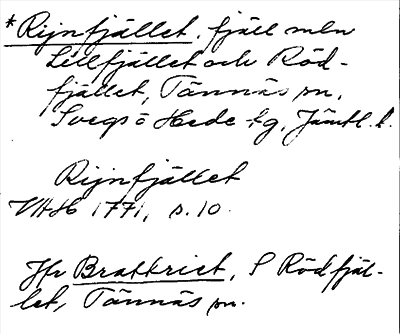 *Rijnfjället, fjäll mln
Lillfjället och Röd-
fjället, Tännäs sn,
Svegs o Hede tg, Jämtl. l.
Rijnfjället
VHH 1771, s. 10.
Jfr Brattriet, S Rödfjäl-
let, Tännäs sn.